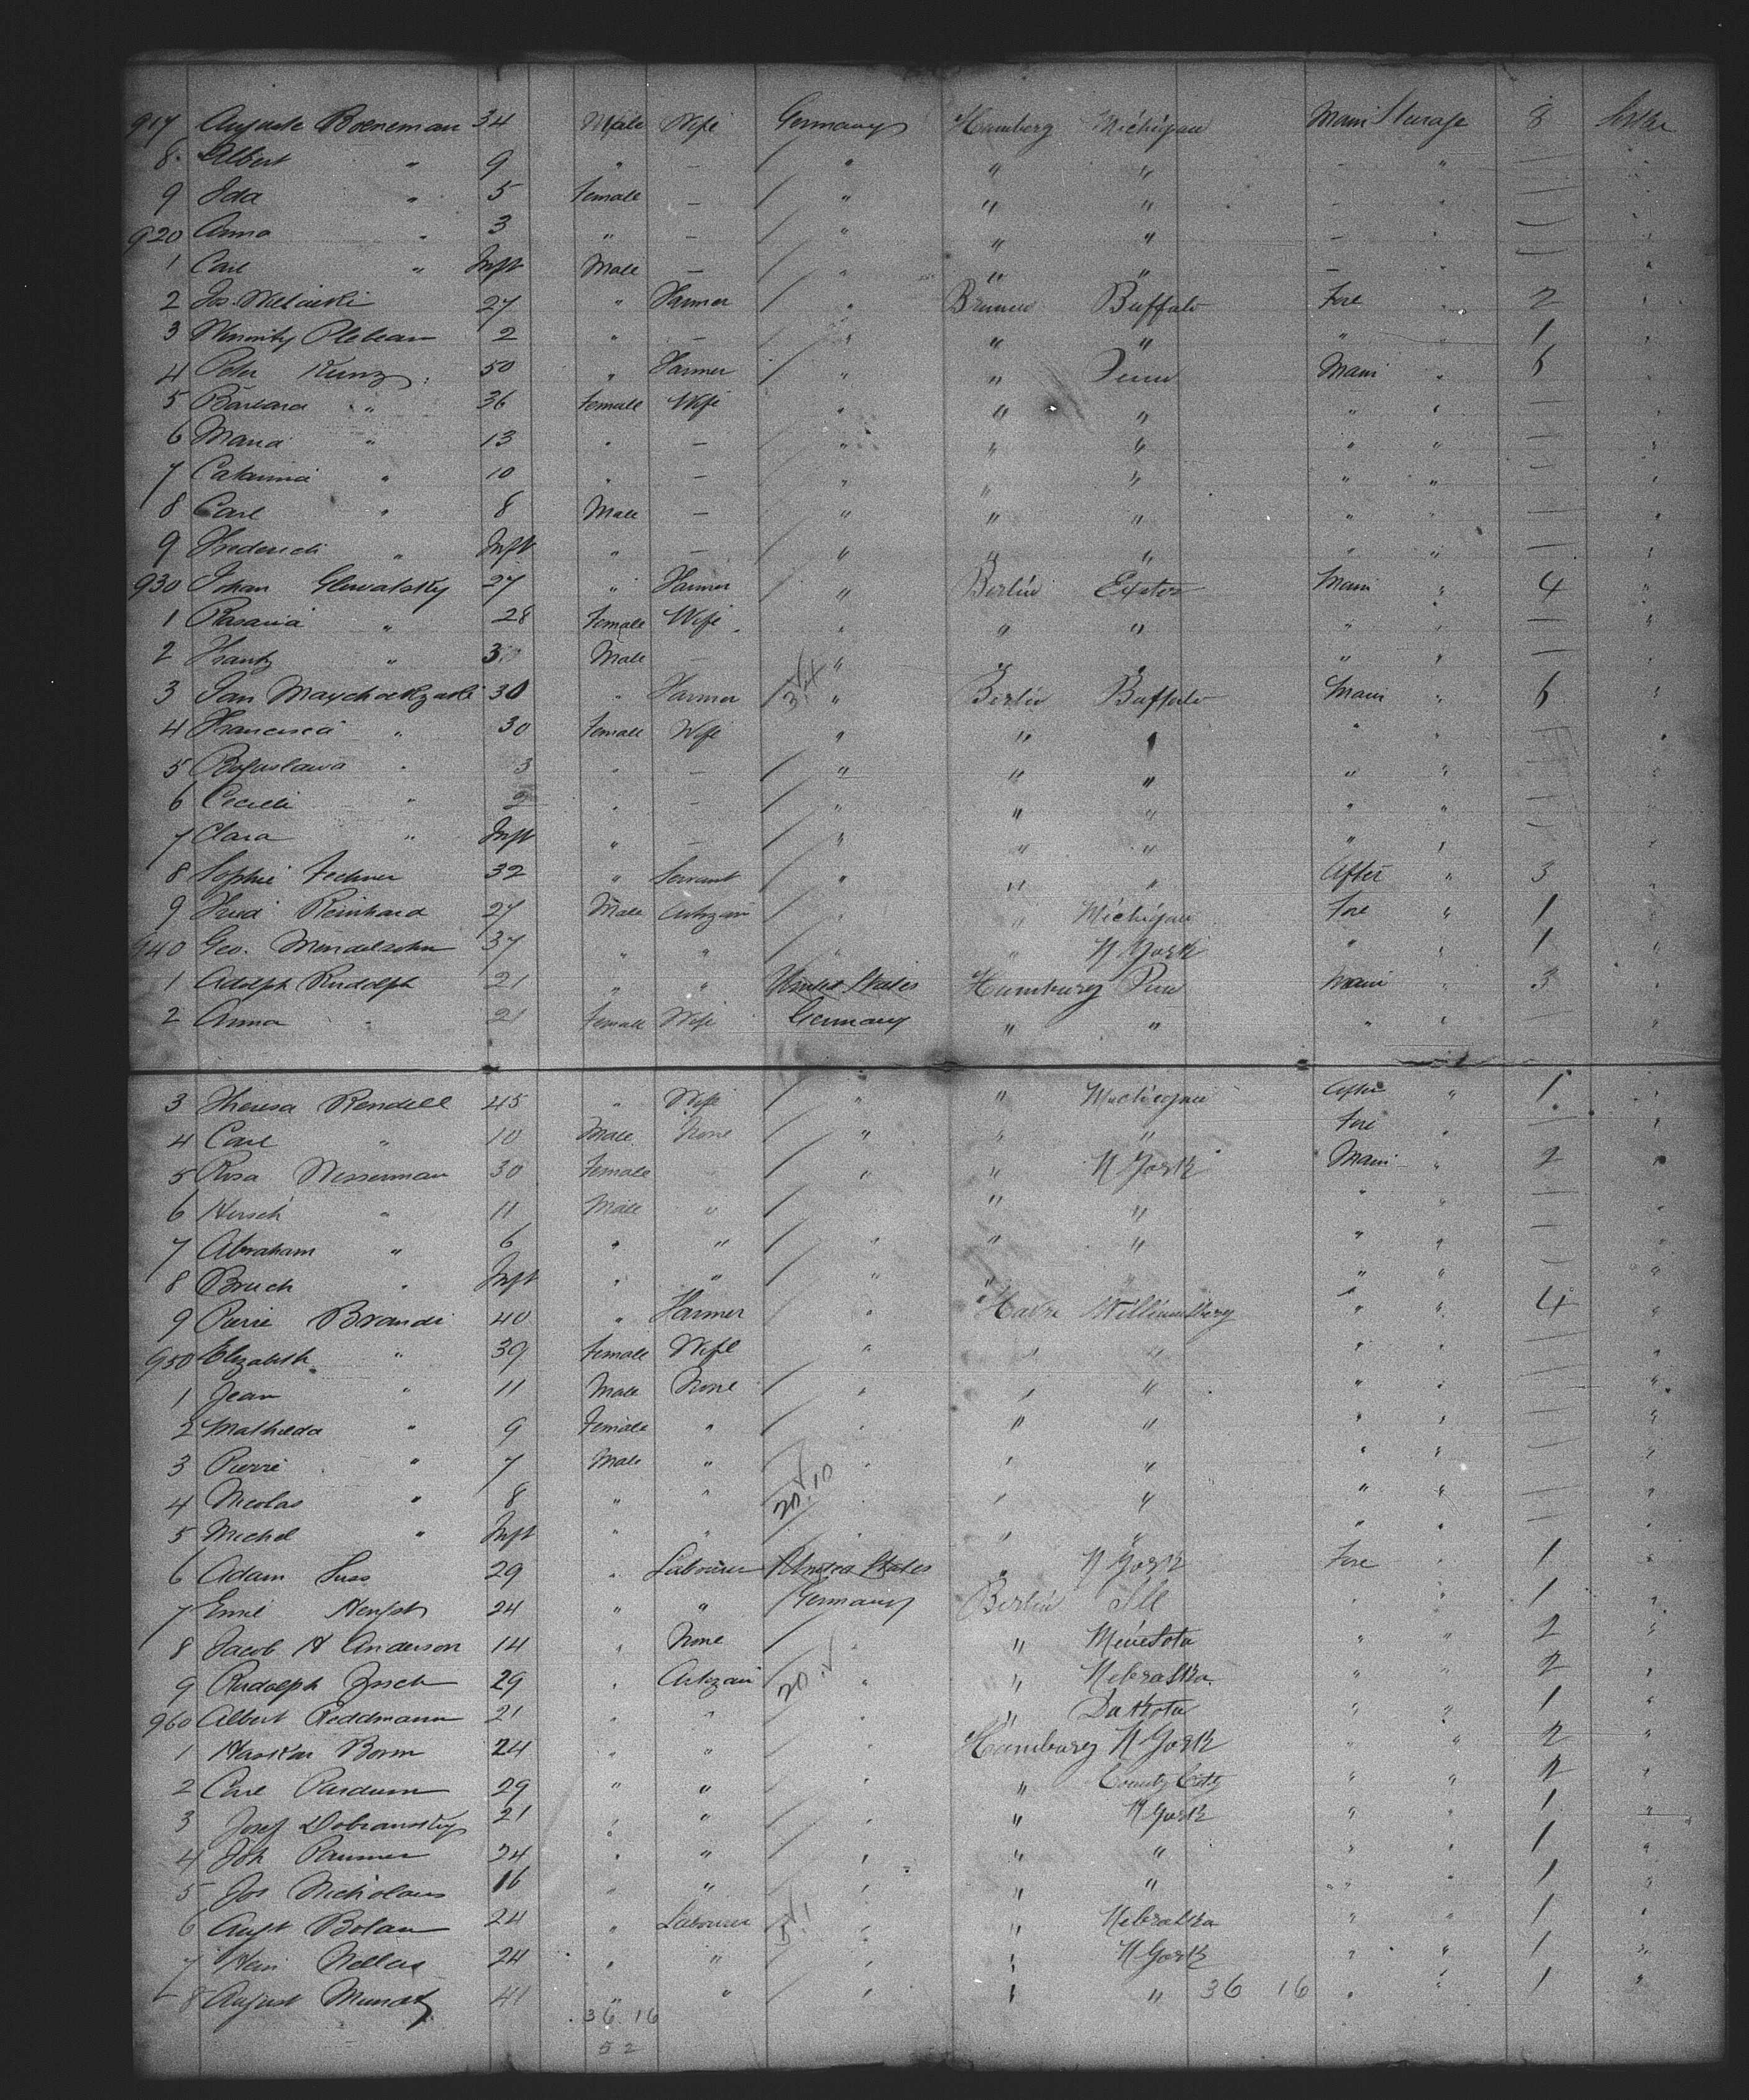 917 Auguste Boeneman 34 Male Wife Germany Hamberg Michigan Main Sturage 8
8 Albert " 9 " — " " " – " —
9 Ida " 5 Female — " " " – " —
920 Anna " 3 " — " " " – " —
1 Carl " Inft Male — " " " – " —
2 Jos. 27 " Farmer " Bremen Buffalo Fore " 2 "
3 Plebean 2 " — " " " " " 1 "
4 Peter Kunz 50 " Farmer " " Penn Main " 6 "
5 Barbara " 36 Female Wife " " " " " — "
6 Maria " 13 " — " " " " " — "
7 Catarina " 10 " — " " " " " — "
8 Carl " 8 Male — " " " " " — "
9 Frederich " Inft " — " " " " " — "
930 Johan Glewatsky 27 " Farmer " Berlin Exeter Main " 4 "
1 Rasaria " 28 Female Wife " " " " " — "
2 Frantz " 3 Male — " " " " " — "
3 Jan Maychockzaki 30 " Farmer 3.4 " Berlin Buffalo Main " 6 "
4 Francisca " 30 Female Wife " " " " " — "
5 Boguslawa " 3 " — " " " " " — "
6 Cecilli " 2 " — " " " " " — "
7 Clara " Inft " — " " " " " — "
8 Sophie Fechner 32 " Servant " " " After " 3 "
9 Reinhard 27 Male Artizan " " Michigan Fore " 1 "
940 Geo. Mendelsohn 37 " " " " N York " " 1 "
1 Adolph Rudolph 21 " " United States Hamburg Penn Main " 3 "
2 Anna " 21 Female Wife Germany " " " " — "
3 Theresa Rendell 45 " Wife " " Michigan After " 1 "
4 Carl " 10 Male None " " " Fore " — "
5 Rosa Wesserman 30 Female " " N York Main " 2 "
6 Hirsch " 11 Male " " " " " — "
7 Abraham " 6 " " " " " " " — "
8 Bruch " Inft " " " " " " " — "
9 Pierre Brandi 40 " Farmer " Havre Williamsburg " " 4 "
950 Elizabeth " 39 Female Wife " " " " " — "
1 Jean " 11 Male None " " " " " — "
2 Mathilda " 9 Female " " " " " " — "
3 Pierre " 7 Male " " " " " " — "
4 Nicolas " 8 " " 20.10 " " " " " — "
5 Michel " Inft " " " " " " " — "
6 Adam Suss 29 " Labourer United States " N York Fore " 1 "
7 Emil Hengst 24 " " Germany Berlin Ill " " 1 "
8 Jacob H Anderson 14 " None " " Minesota " " 2 "
9 Rudolph 29 " Artizan 20 " " Nebraska " " 2 "
960 Albert Reddmann 21 " " " " Dakota " " 1 "
1 Born 24 " " " Hamburg N York " " 2 "
2 Carl 29 " " " " County City " " 2 "
3 Josef Dobransky 21 " " " " N York " " 1 "
4 Joh Paumer 24 " " " " " " " 1 "
5 Jos Nicholaus 16 " " " " " " " 1 "
6 Augst Bolan 24 " Labourer " " Nebraska " " 1 "
7 Hein 24 " " " " N York " " 1 "
8 August Mundt 41 " " " " " 36 16 " " 1 "
36 16
52